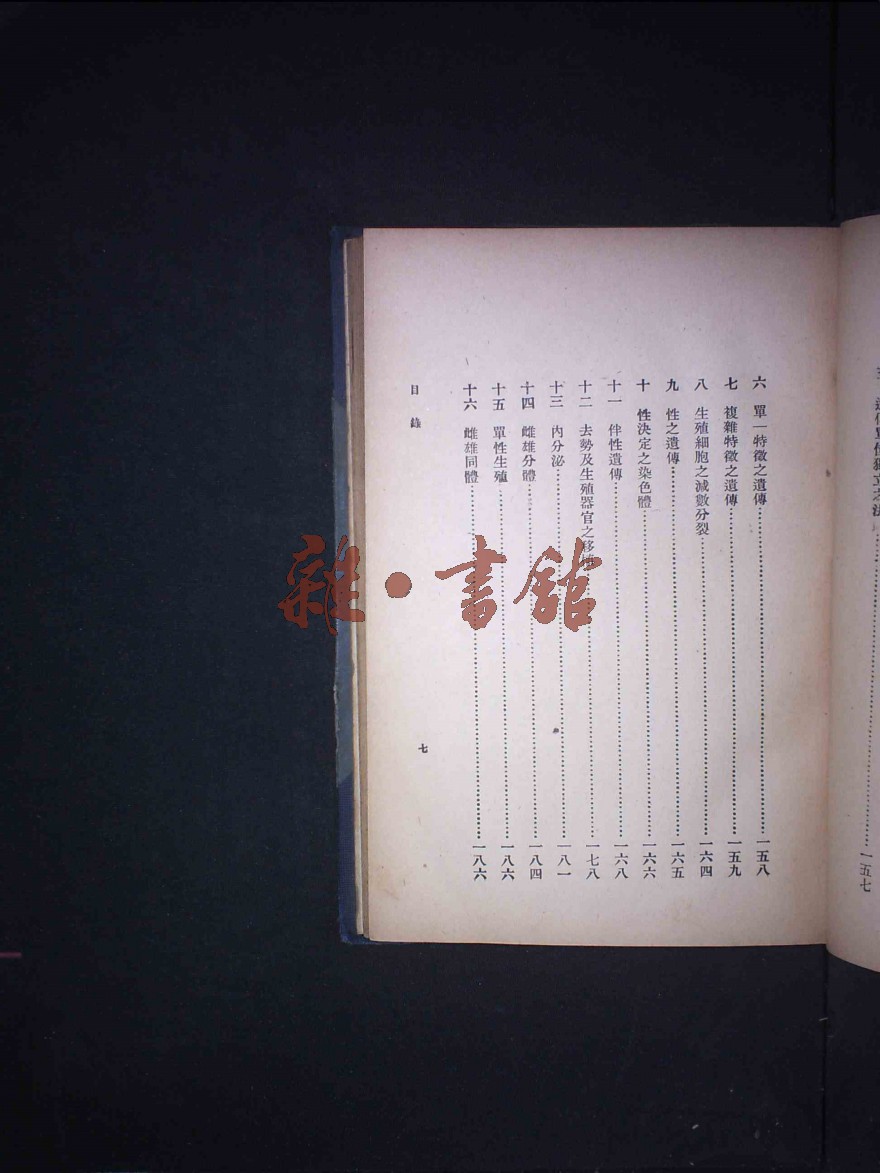 單位獨立之法
一五七
六 單一特徵之遺傳……一五八
七 複雜特徵之遺傳……一五九
八 生殖細胞之減數分裂……一六四
九 性之遺傳……一六五
十 性決定之染色體……一六六
十一 伴性遺傳……一六八
十二 去勢及生殖器官之移……一七八
十三 內分泌……一八一
十四 雌雄分體……一八四
十五 單性生殖……一八六
十六 雌雄同體……一八六
目錄
七
雜·書館